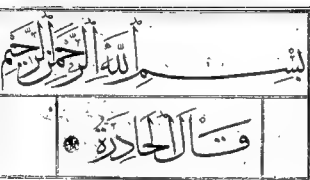 بِسْمِ اللهِ الرَّحْمٰنِ الرَّحِيْمِ
قَالَ الْحَادِرَةُ